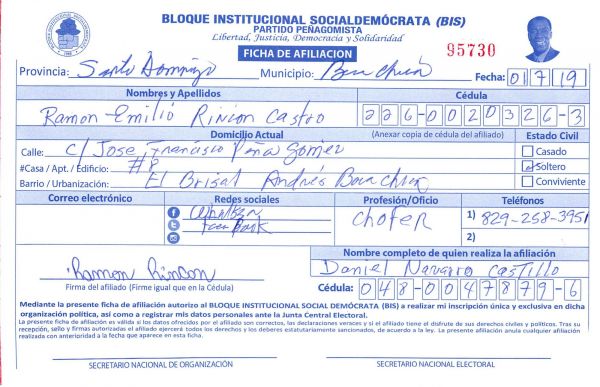 BLOQUE INSTITUCIONAL SOCIALDEMÓCRATA (BIS)
PARTIDO PEÑAGOMISTA
Libertad, Justicia, Democracia y Solidaridad
FICHA DE AFILIACION
95730
Provincia: Santo Domingo Municipio: Boca Chica Fecha: 01 7 19
Nombres y Apellidos Cédula
Ramon Emilio Rincon Castro 226-0020326-3
Domicilio Actual (Anexar copia de cédula del afiliado) Estado Civil
Calle: C/ Jose Francisco Peña Gomez Casado
#Casa / Apt. / Edificio: #8 Soltero
Barrio / Urbanización: El Brisal Andrés Boca Chica Conviviente
Correo electrónico Redes sociales Profesión/Oficio Teléfonos
Chofer 1) 829-258-3951
2)
Nombre completo de quien realiza la afiliación
Daniel Navarro Castillo
Ramon Rincon
Firma del afiliado (Firme igual que en la Cédula) Cédula: 048-0047879-6
Mediante la presente ficha de afiliación autorizo al BLOQUE INSTITUCIONAL SOCIAL DEMÓCRATA (BIS) a realizar mi inscripción única y exclusiva en dicha
organización política, así como a registrar mis datos personales ante la Junta Central Electoral.
La presente ficha de afiliación es válida si los datos ofrecidos por el afiliado son correctos, las declaraciones veraces y si el afiliado tiene el disfrute de sus derechos civiles y políticos. Tras su
recepción, sello y firmas autorizadas el afiliado ejercerá todos los derechos y los deberes estatutariamente sancionados, de acuerdo a la ley. La presente afiliación anula cualquier afiliación
realizada con anterioridad a la fecha que aparece en esta ficha.
SECRETARIO NACIONAL DE ORGANIZACIÓN SECRETARIO NACIONAL ELECTORAL